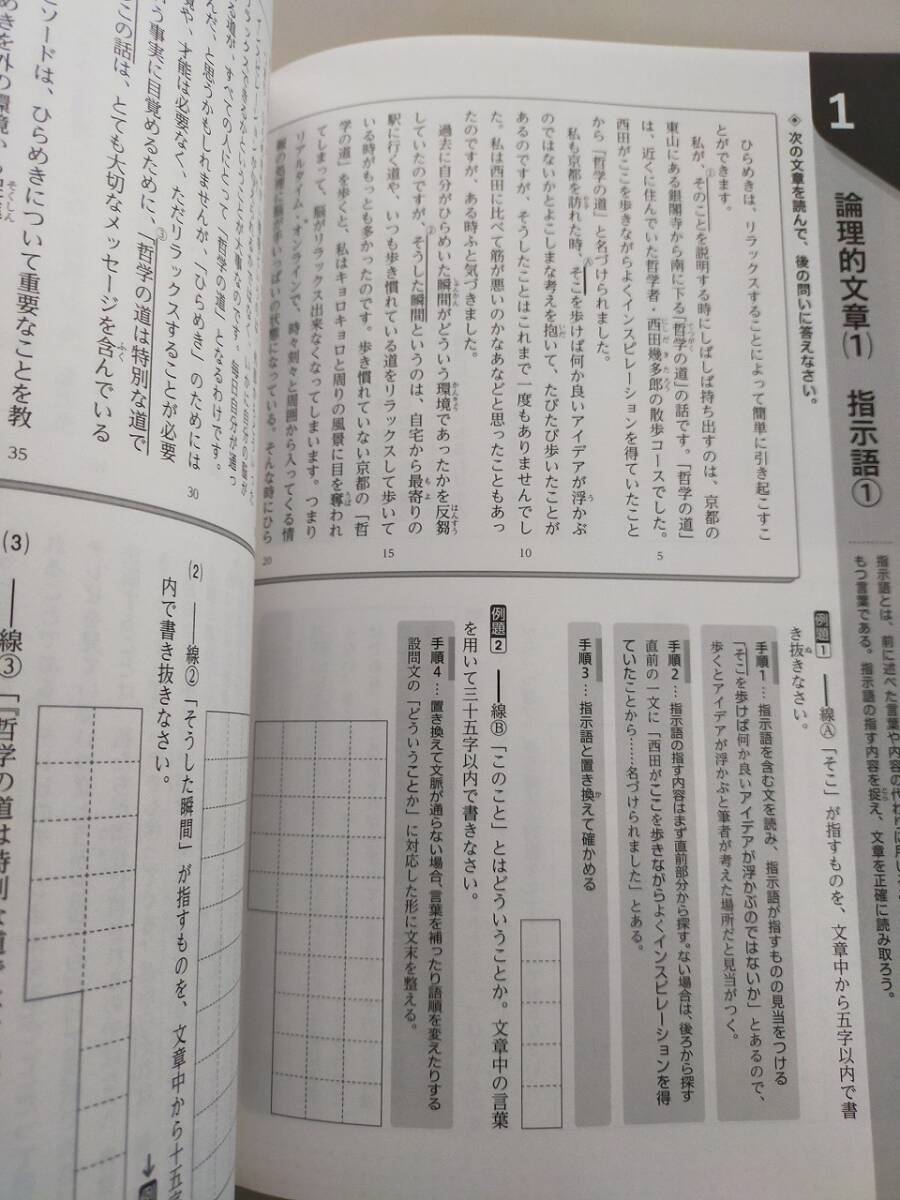 1
論理的文章⑴　指示語①
指示語とは、前に述べた言葉や内容の代わりに用い
もつ言葉である。指示語の指す内容を捉え、文章を正確に読み取ろう。
◈次の文章を読んで、後の問いに答えなさい。
ひらめきは、リラックスすることによって簡単に引き起こすこ
とができます。
私が、①そのことを説明する時にしばしば持ち出すのは、京都の
東山にある銀閣寺から南に下る「哲学の道」の話です。「哲学の道」
は、近くに住んでいた哲学者・西田幾多郎の散歩コースでした。
西田がここを歩きながらよくインスピレーションを得ていたこと
から「哲学の道」と名づけられました。
私も京都を訪れた時、Ⓐそこを歩けば何か良いアイデアが浮かぶ
のではないかとよこしまな考えを抱いて、たびたび歩いたことが
あるのですが、そうしたことはこれまで一度もありませんでし
た。私は西田に比べて筋が悪いのかなあなどと思ったこともあっ
たのですが、ある時ふと気づきました。
過去に自分がひらめいた瞬間がどういう環境であったかを反芻
していたのですが、②そうした瞬間というのは、自宅から最寄りの
駅に行く道や、いつも歩き慣れている道をリラックスして歩いて
いる時がもっとも多かったのです。歩き慣れていない京都の「哲
学の道」を歩くと、私はキョロキョロと周りの風景に目を奪われ
てしまって、脳がリラックス出来なくなってしまいます。つまり
リアルタイム・オンラインで、時々刻々と周囲から入ってくる情
報の処理に脳が手いっぱいの状態になっている。そんな時にひら
5
10
15
20
例題1　――線Ⓐ「そこ」が指すものを、文章中から五字以内で書
き抜きなさい。
手順1…指示語を含む文を読み、指示語が指すものの見当をつける
「そこを歩けば何か良いアイデアが浮かぶのではないか」とあるので、
歩くとアイデアが浮かぶと筆者が考えた場所だと見当がつく。
手順2…指示語の指す内容はまず直前部分から探す。ない場合は、後ろから探す
直前の一文に「西田がここを歩きながらよくインスピレーションを得
ていたことから……名づけられました」とある。
手順3…指示語と置き換えて確かめる
例題2　――線Ⓑ「このこと」とはどういうことか。文章中の言葉
を用いて三十五字以内で書きなさい。
手順4…置き換えて文脈が通らない場合、言葉を補ったり語順を変えたりする
設問文の「どういうことか」に対応した形に文末を整える。
る道が、すべての人にとって「哲学の道」となるわけです。
んだ、と思うかもしれませんが、「ひらめき」のためには
や、才能は必要なく、ただリラックスすることが必要
う事実に目覚めるために、③「哲学の道は特別な道で
この話は、とても大切なメッセージを含んでいる
ソードは、ひらめきについて重要なことを教
30
35
⑵　――線②「そうした瞬間」が指すものを、文章中から十五字
内で書き抜きなさい。
⑶　――線③「『哲学の道は特別な道で